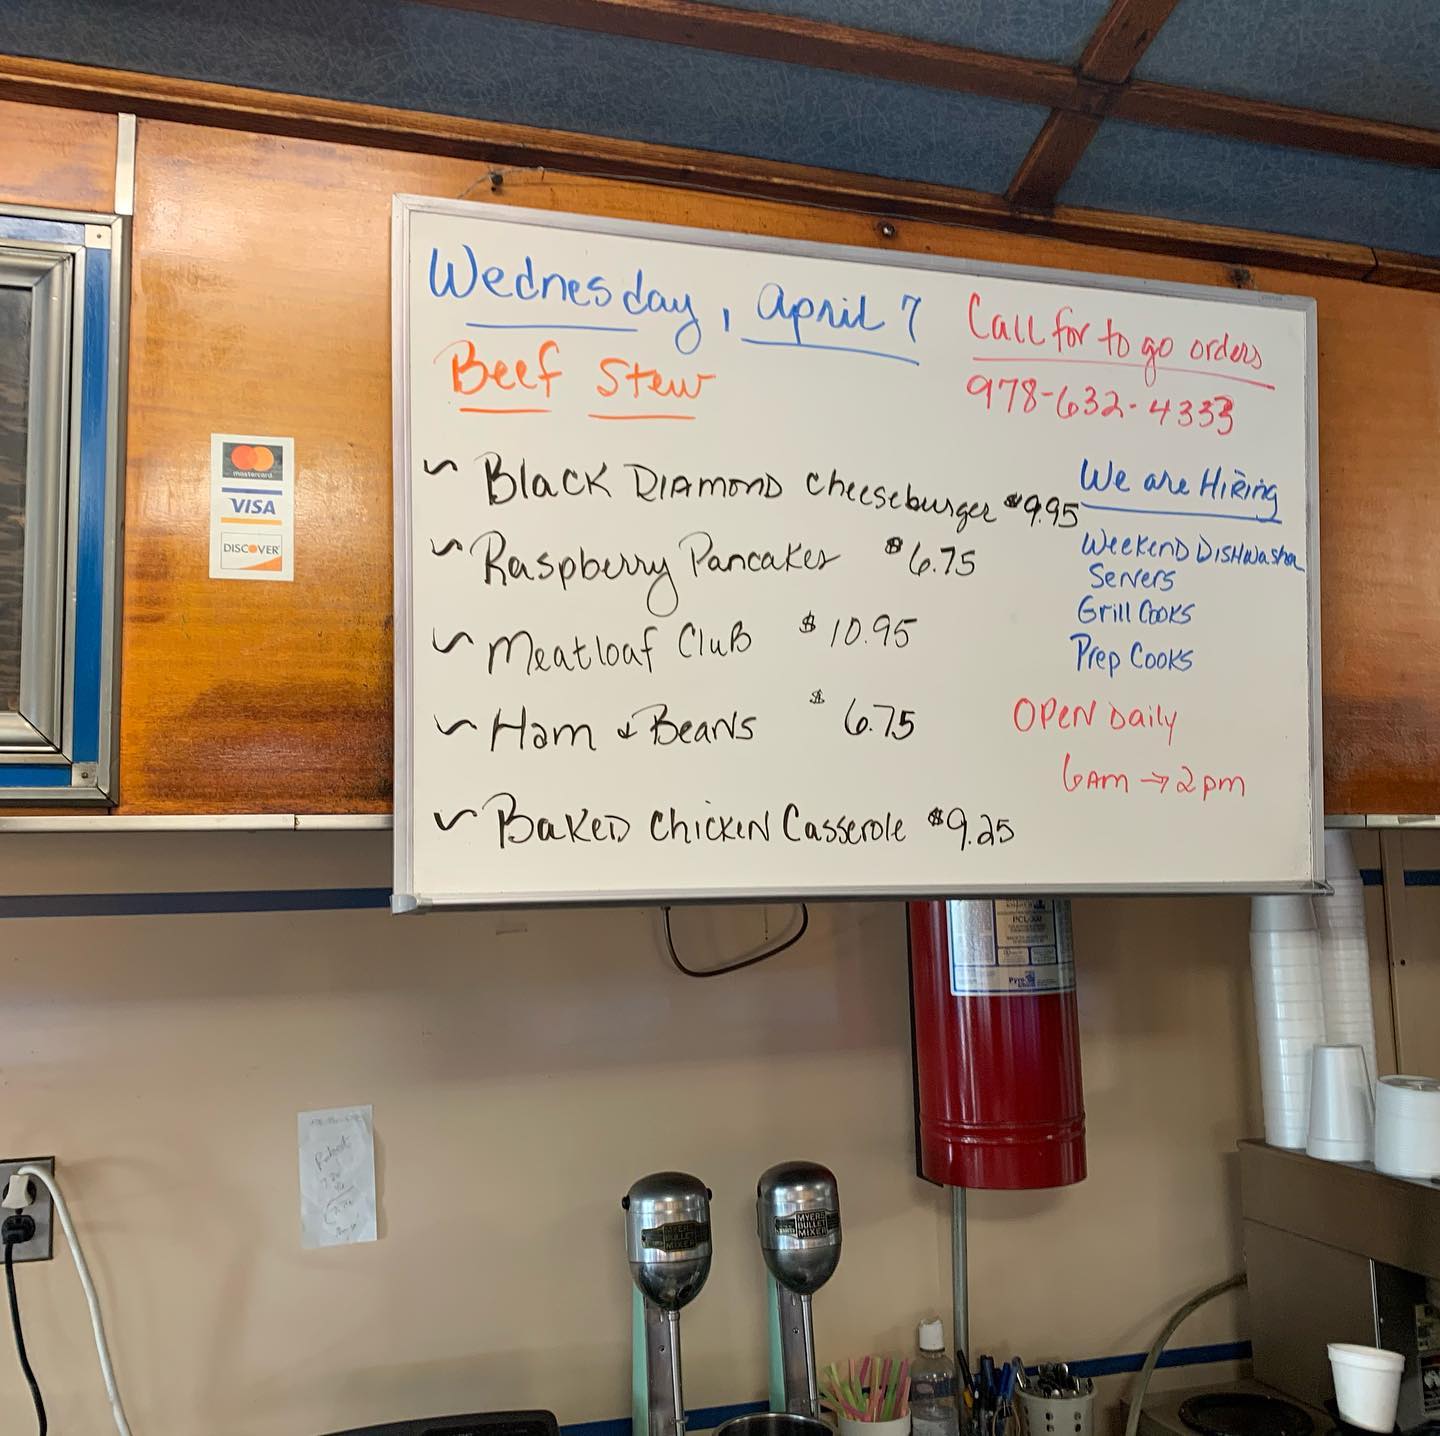 Wednesday, April 7
Beef Stew
Call for to go orders
978-632-4333
~ Black Diamond Cheeseburger $9.95
~ Raspberry Pancakes $6.75
~ Meatloaf Club $10.95
~ Ham & Beans $6.75
~ Baked Chicken Casserole $9.25
We are Hiring
Weekend Dishwasher
Servers
Grill Cooks
Prep Cooks
Open Daily
6am → 2pm
mastercard
VISA
DISCOVER
PCL-300
Pyro
Robert
MYERS
BULLET
MIXER
MYERS
BULLET
MIXER